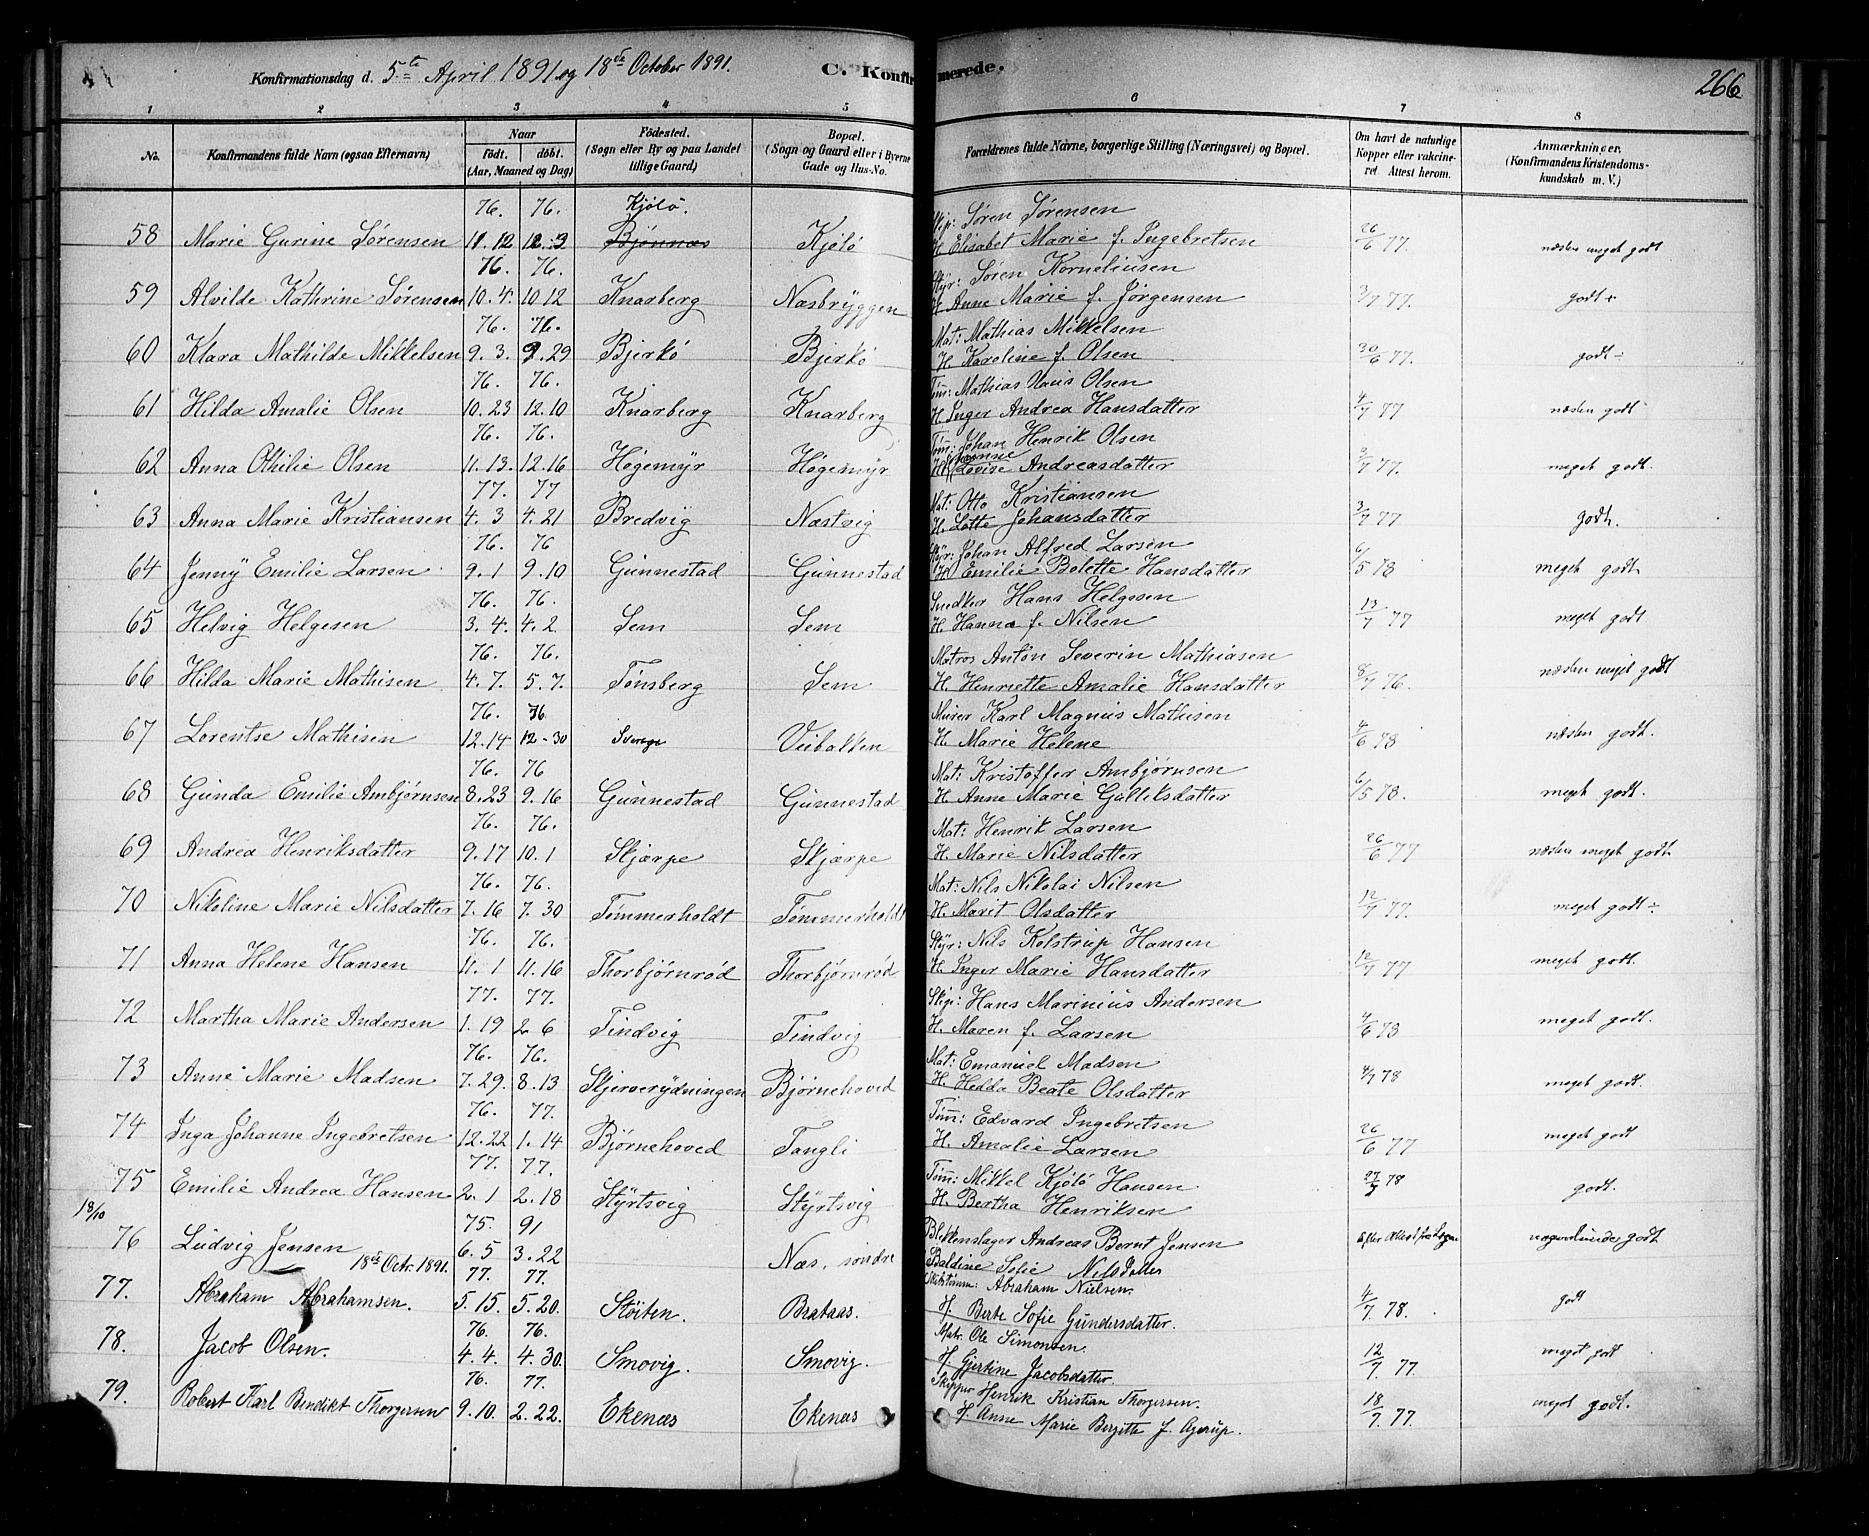 Konfirmationsdag d. 5te April 1891 og 18de October 1891. C. Konfirmerede. 266
1 2 3 4 5 6 7 8
No. Konfirmandens fulde Navn (ogsaa Efternavn) Naar Födt. döbt. (Aar, Maaned og Dag) Födested. (Sogn eller By og paa Landet tillige Gaard) Bopæl. (Sogn og Gaard eller i Byerne Gade og Hus-No. Forældrenes fulde Navne, borgerlige Stilling (Næringsvei) og Bopæl. Om havt de naturlige Kopper eller vakcineret. Attest herom. Anmærkninger. (Konfirmandens Kristendomskundskab m. V.)
76. 76. Kjölö. Skip: Søren Sørensen
58 Marie Gurine Sørensen 11.12 12.3 Bjønnæs Kjölö H. Elisabet Marie f. Ingebretsen 26/6 77. næsten meget godt
76. 76. Styr: Søren Korneliusen
59 Alvilde Kathrine Sørensen 10.4. 10.12 Knarberg Næsbryggen H. Anne Marie f. Jørgensen 3/7 77. godt +
76. 76. Mat: Mathias Mikkelsen
60 Klara Mathilde Mikkelsen 9.3. 9.29 Bjerkö Bjerkö H. Karoline f. Olsen 30/6 77. godt ÷
76. 76. Töm: Mathias Hans Olsen
61 Hilda Amalie Olsen 10.23 12.10 Knarberg Knarberg H. Inger Andrea Hansdatter 4/7 77 næsten godt
76. 76. Töm: Johan Henrik Olsen
62 Anna Othilie Olsen 11.13. 12.16 Høgemyr Høgemyr H. Lovise Andreasdatter 3/7 77. meget godt.
77. 77 Mat: Otto Kristiansen
63 Anna Marie Kristiansen 4.3 4.21 Bredvig Næstvig H. Lotte Johansdatter 3/7 77 godt.
76. 76 Styr: Johan Alfred Larsen
64 Jenny Emilie Larsen 9.1 9.10 Gunnestad Gunnestad H. Emilie Bolette Hansdatter 6/5 78 meget godt
76. 76. Snedker Hans Helgesen
65 Helvig Helgesen 3.4. 4.2. Sem Sem H. Hanna f. Nilsen 13/7 77 meget godt
76. 76. Matros Anton Severin Mathiasen
66 Hilda Marie Mathisen 4.7. 5.7. Tønsberg Sem H. Henriette Amalie Hansdatter 8/7 76. næsten meget godt
76. 76 Murer Karl Magnus Mathisen
67 Lorentse Mathisen 12.14 12-30 Sverge Veibakken H. Marie Helene 4/6 78 næsten godt.
76. 76 Mat: Kristoffer Ambjørnsen
68 Gunda Emilie Ambjørnsen 8.23 9.16 Gunnestad Gunnestad H. Anne Marie Gulliksdatter 6/5 78. meget godt.
76. 76. Mat: Henrik Larsen
69 Andrea Henriksdatter 9.17 10.1 Skjærpe Skjærpe H. Marie Nilsdatter 26/6 77 næsten meget godt
76. 76. Mat: Nils Nikolai Nilsen
70 Nikoline Marie Nilsdatter 7.16 7.30 Tømmerholdt Tømmerholdt H. Marit Olsdatter 12/7 77. meget godt ÷
76. 76. Styr: Nils Kolstrup Hansen
71 Anna Helene Hansen 11.1 11.16 Thorbjørnrød Thorbjørnrød H. Inger Marie Hansdatter 12/7 77 meget godt.
77. 77. Skip: Hans Marinius Andersen
72 Martha Marie Andersen 1.19 2.6 Tindvig Tindvig H. Maren f. Larsen 4/6 78 meget godt.
76. 76. Mat: Emanuel Madsen
73 Anne Marie Madsen 7.29. 8.13 Skjerverydningen Bjørnehoved H. Hedda Beate Olsdatter 4/7 78 meget godt.
76. 77. Töm: Edvard Ingebretsen
74 Inga Johanne Ingebretsen 12.22 1.14 Bjørnehoved Tangli H. Amalie Larsen 26/6 77 meget godt
77. 77. Töm: Mikkel Kjölö Hansen
75 Emilie Andrea Hansen 2.1 2.18 Styrtsvig Styrtsvig H. Bertha Henriksen 27/5 78 godt.
18/10 75. 91 Blikkenslager Andreas Bernt Jensen
76 Ludvig Jensen 6.5 3.22 Næs, søndre Baldine Sofie Nilsdatter Efter Attest fra Lægen nogenlunde godt
18de Octr. 1891. 77. 77. Skibstømm: Abraham Nielsen.
77. Abraham Abrahamsen. 5.15. 5.20. Stöiten. Brataas. H. Berte Sofie Gundersdatter. 4/7 78. godt
76. 76. Matr. Ole Simonsen.
78. Jacob Olsen. 4.4. 4.30. Smovig. Smovig. H. Gjertine Jacobsdatter. 12/7 77. meget godt
76. 77. Skipper Henrik Kristian Thorgersen.
79. Robert Karl Bendikt Thorgersen 9.10. 2.22. Ekenæs Ekenæs H. Anne Marie Birgitte f. Agerup. 18/7 77. meget godt.